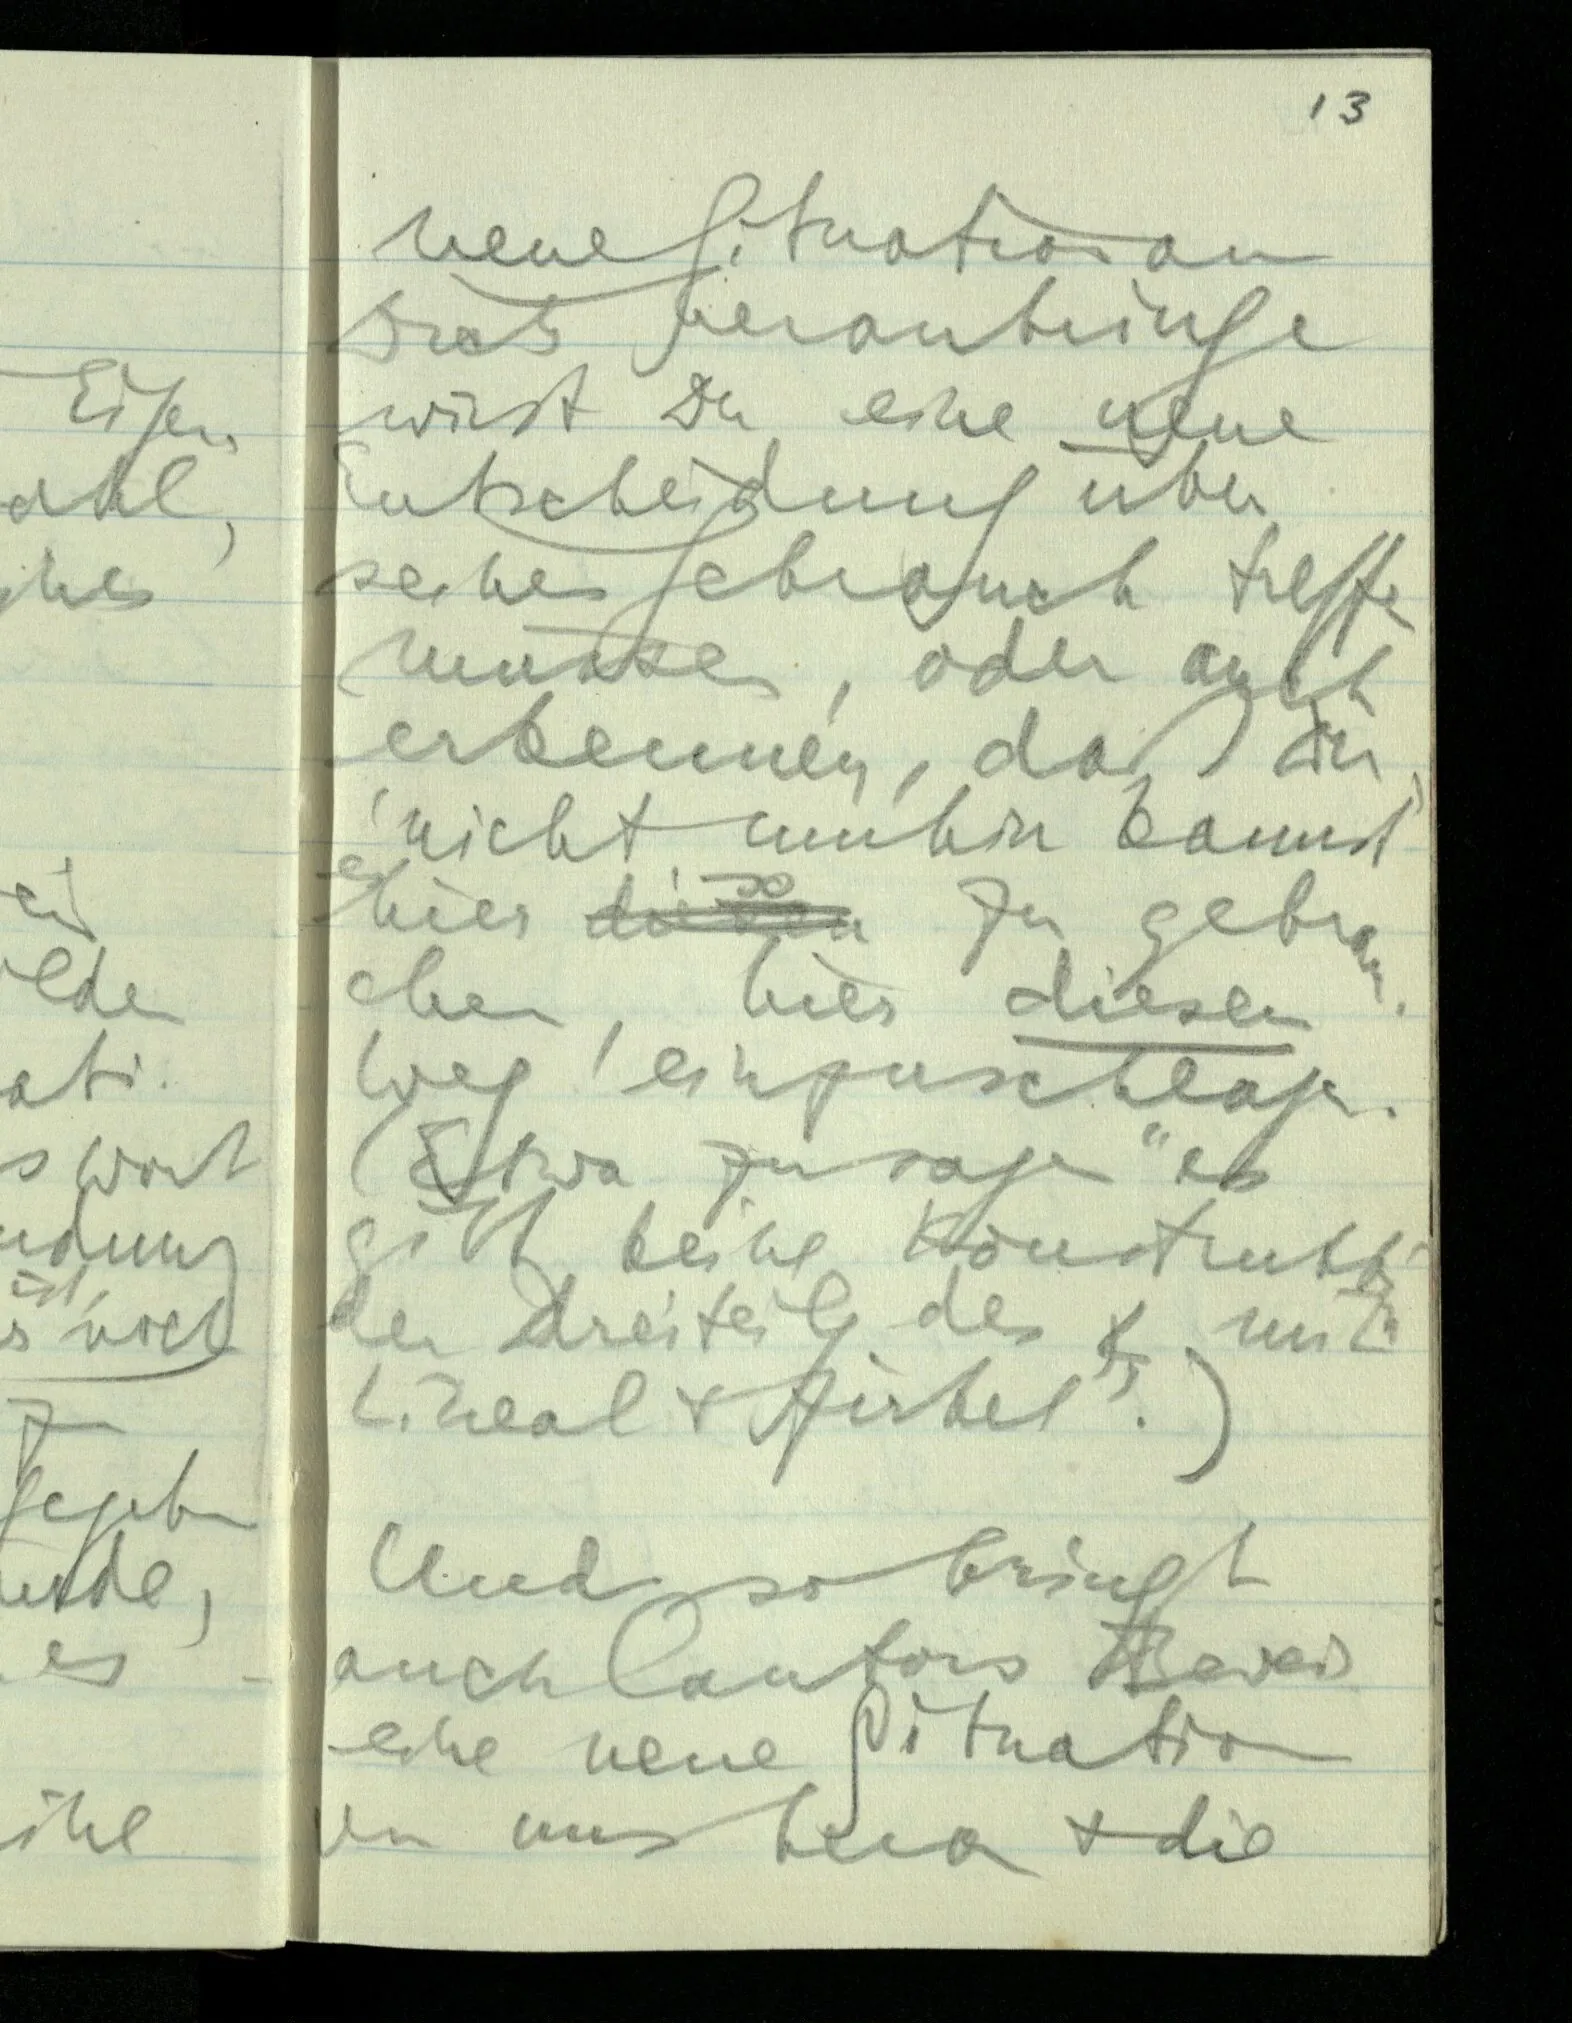 13
neue Situation an
Dich heranbringe
wirst Du eine neue
Entscheidung über
seinen Gebrauch treffen
müssen, oder auch
erkennen, daß Du
nicht umhin kannst
es
hier so zu gebrau-
chen, hier diesen
Weg einzuschlagen.
(Etwa zu sagen "es
gibt keine Konstruktion
der Dreiteilg des ∢s mit
Lineal & Zirkel".)
Und so bringt
auch Cantors Beweis
eine neue Situation
an uns heran & die
Eisen
ati.
s Wort
ndung
ist,
noch
zu
gegeben
wurde,
es